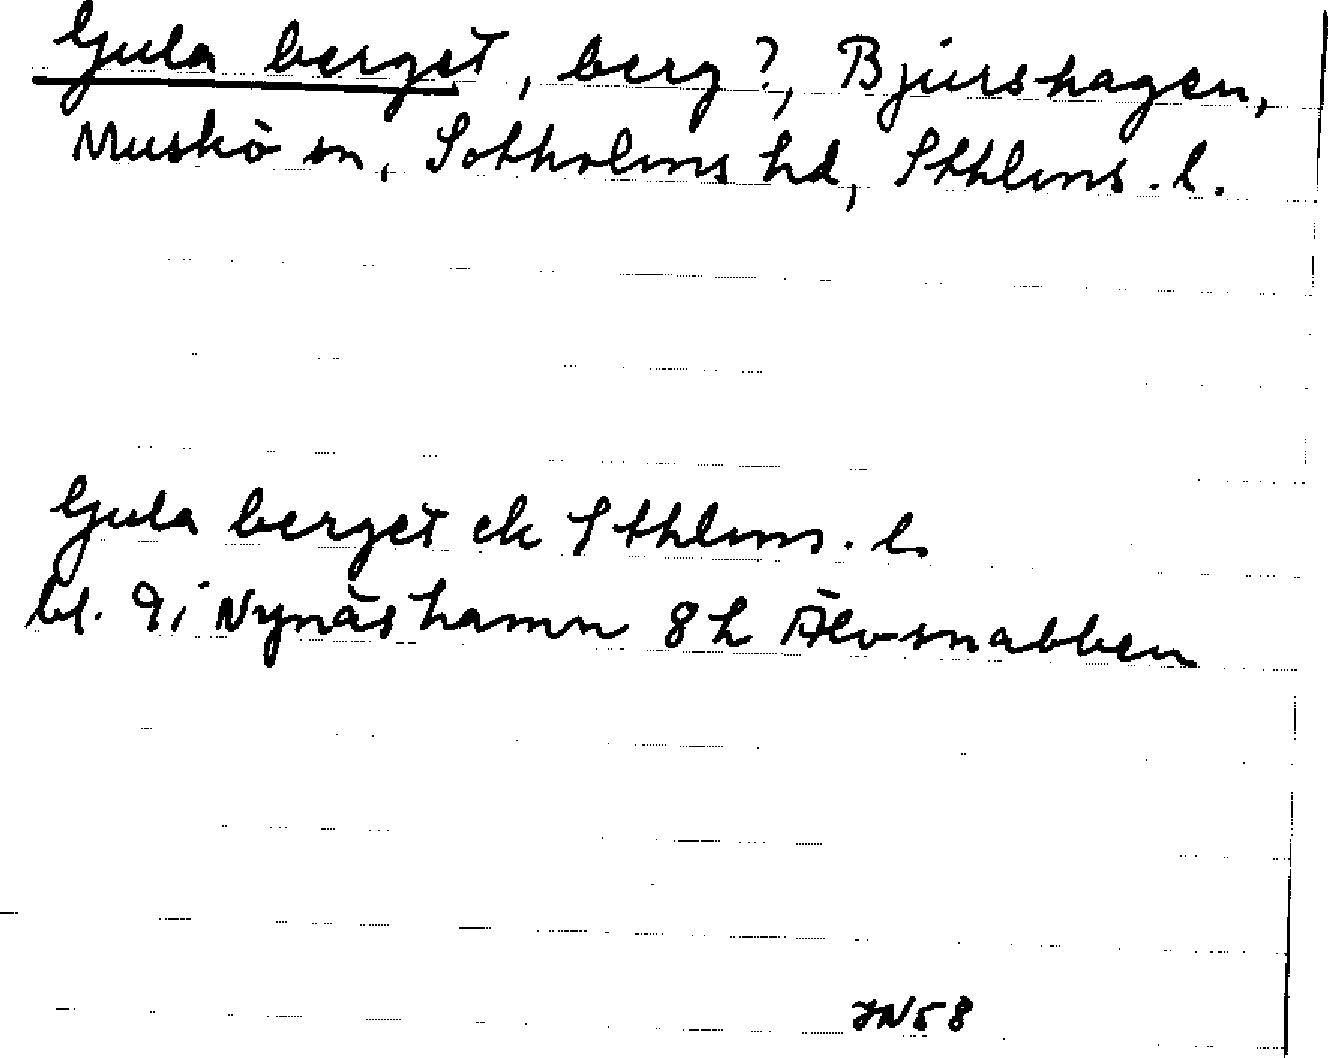 Gula berget, berg?, Bjurshagen,
Muskö sn, Sotholms hd, Sthlms. l.
Gula berget ek Sthlms. l.
bl. 9i Nynäshamn 8h Älvsnabben
JN58